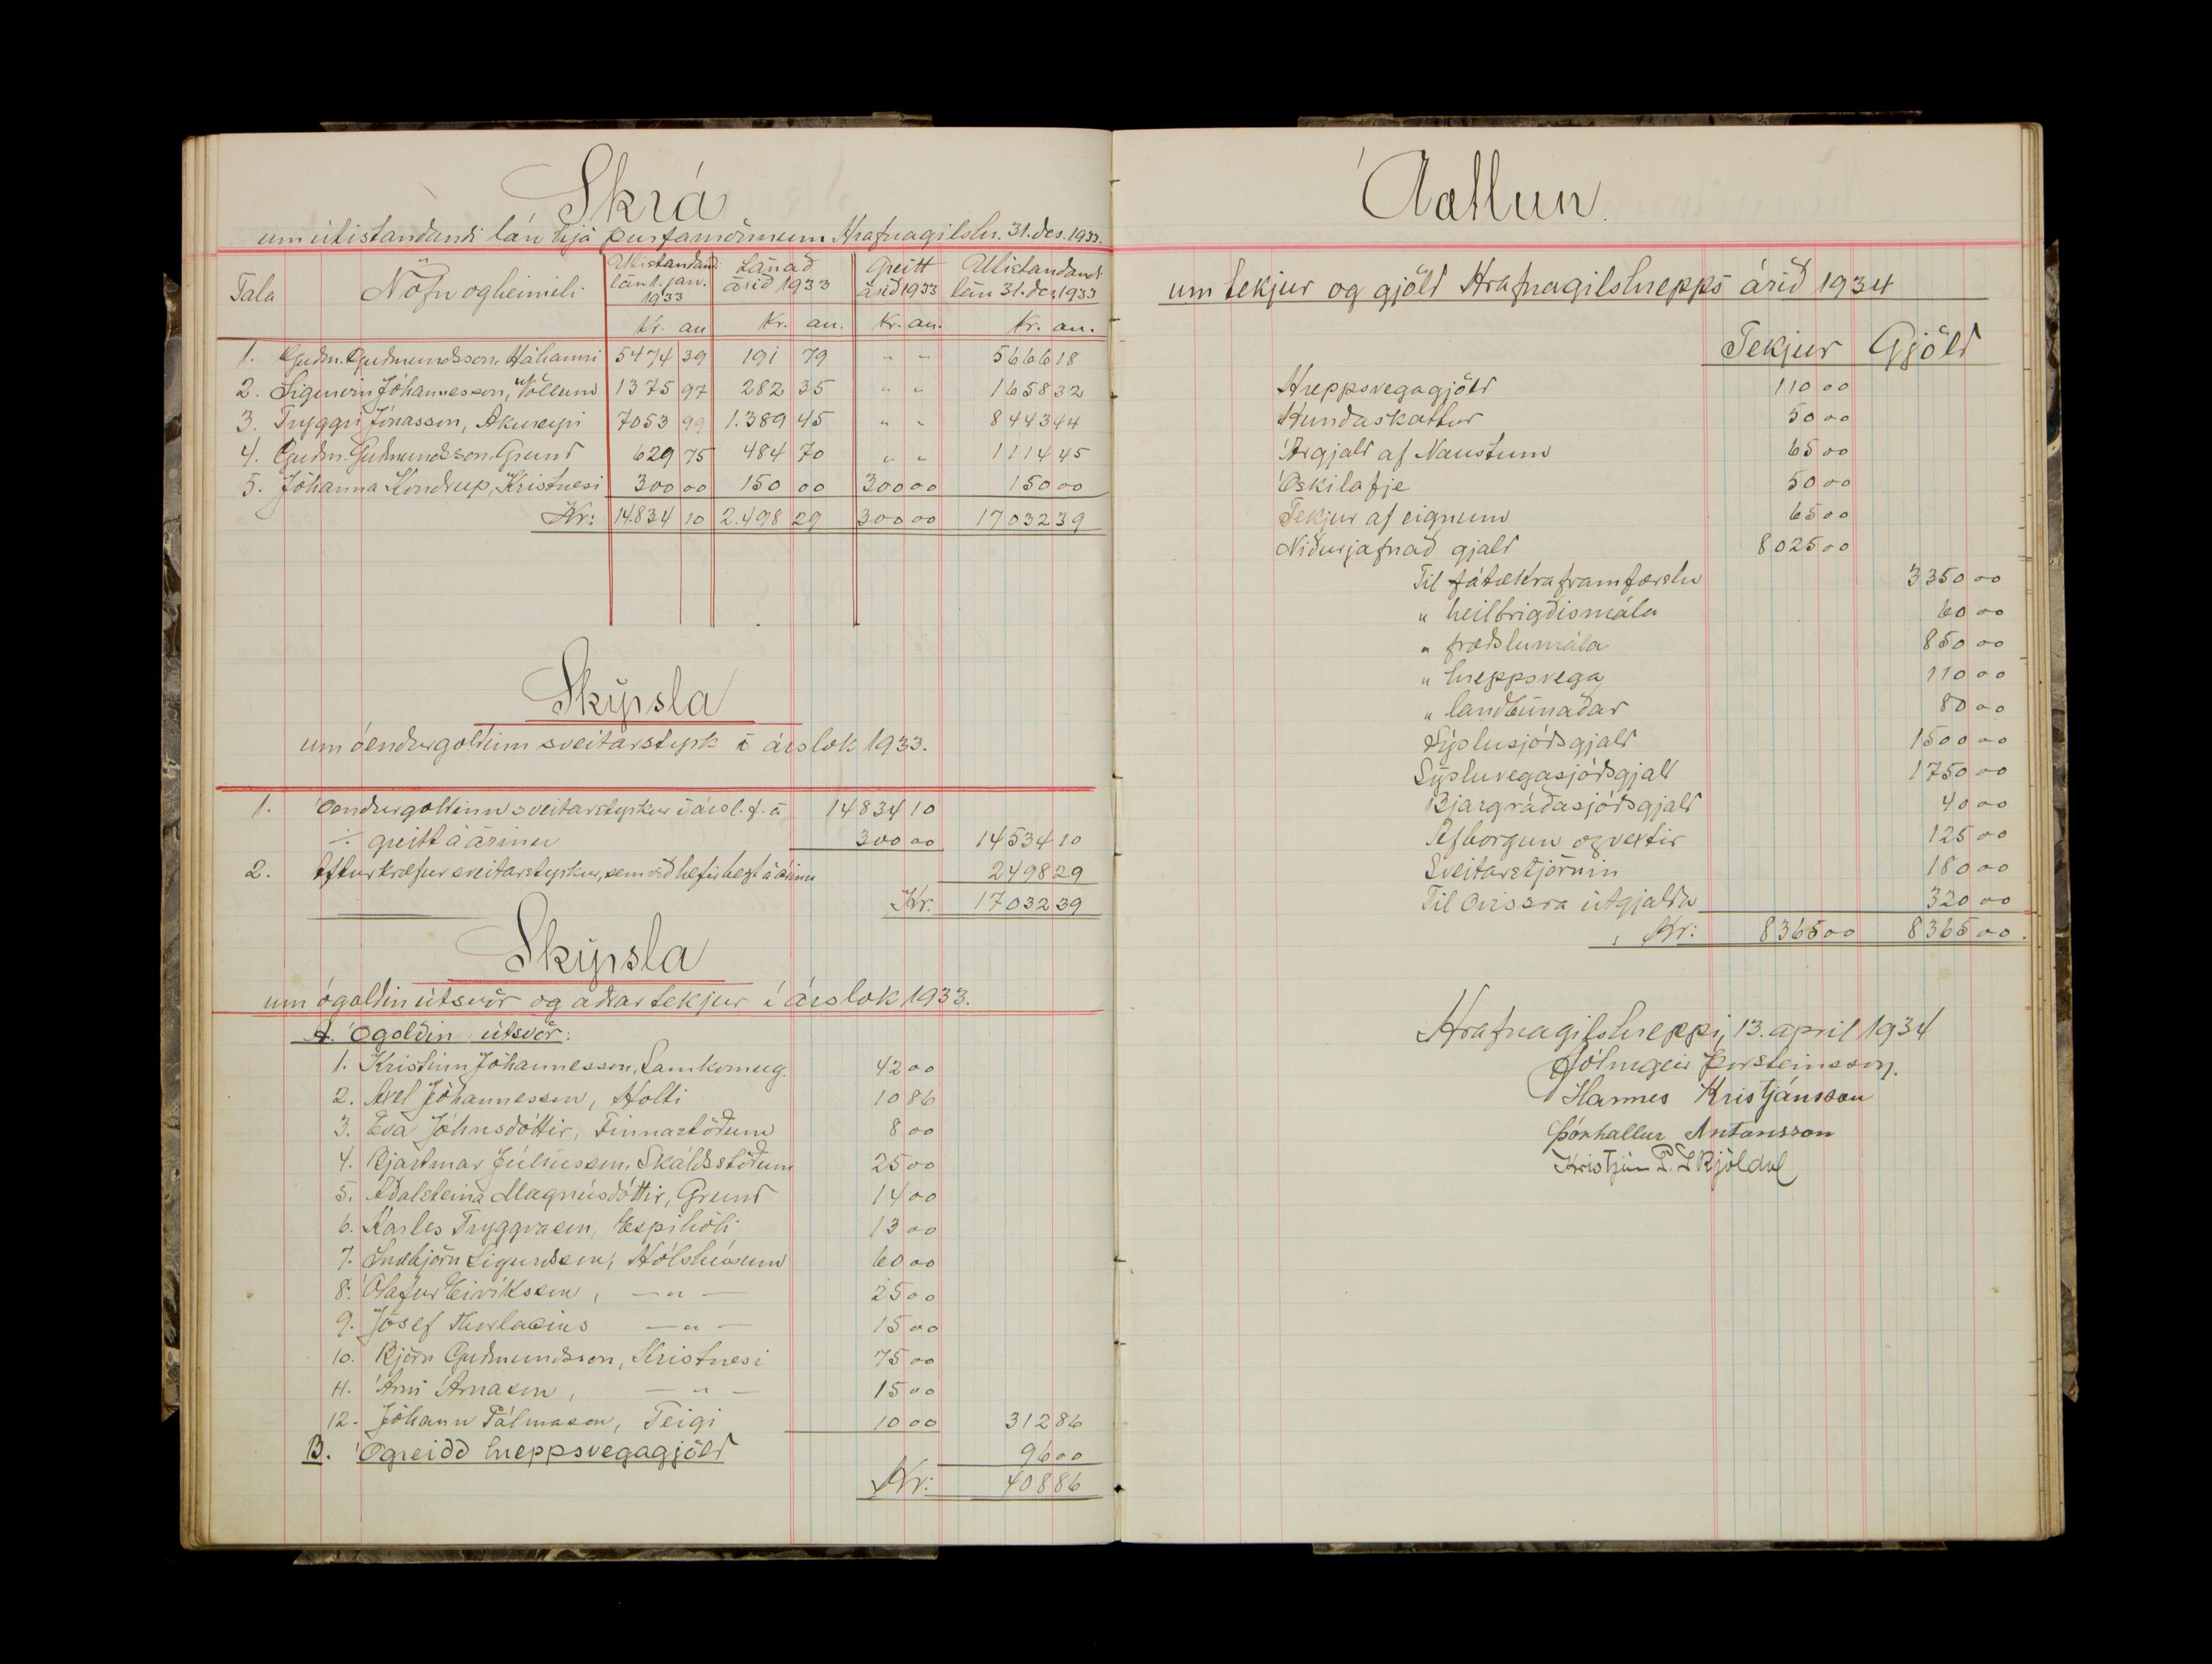 Skrá
um útistandandi lán hjá þurfamönnum Hrafnagilshr. 31. des. 1933.
Tala Nöfn og heimili Útistandandi lán 1. jan. 1933 Lánað árið 1933 Greitt árið 1933 Útistandandi lán 31. des. 1933
Kr. au Kr. au. Kr. au. Kr. au.
1. Guðm. Guðmundsson, Háhamri 5474 39 191 79 " " 5666 18
2. Sigurvin Jóhannesson, Völlum 1375 97 282 35 " " 1658 32
3. Tryggvi Jónasson, Akureyri 7053 99 1.389 45 " " 8443 44
4. Guðm. Guðmundsson Grund 629 75 484 70 " " 1114 45
5. Jóhanna Kondrup, Kristnesi 300 00 150 00 300 00 150 00
Kr: 14.834 10 2.498 29 300 00 17032 39
Skýrsla
um óendurgoldinn sveitarstyrk í árslok 1933.
1. Óendurgoldinn sveitarstyrkur í ársl. f. á 14834 10
÷ greitt á árinu 300 00 14534 10
2. Afturkræfur sveitarstyrkur, sem við hefir bæzt á árinu 2498 29
Kr. 17032 39
Skýrsla
um ógoldin útsvör og aðrar tekjur í árslok 1933.
A. Ógoldin útsvör:
1. Kristinn Jóhannesson, Samkomug. 42 00
2. Axel Jóhannesson, Holti 10 86
3. Eva Jóhnsdóttir, Finnastöðum 8 00
4. Bjartmar Júlíusson, Skáldsstöðum 25 00
5. Aðalsteina Magnúsdóttir, Grund 14 00
6. Karles Tryggvason, Espihóli 13 00
7. Snæbjörn Sigurdson, Hólshúsum 60 00
8. Ólafur Eiríksson, — " — 25 00
9. Jósef Thorlacius — " — 15 00
10. Björn Guðmundsson, Kristnesi 75 00
11. Árni Árnason, — " — 15 00
12. Jóhann Pálmason, Teigi 10 00 312 86
B. Ógreidd hreppsvegagjöld 96 00
Kr: 408 86
Áætlun.
um tekjur og gjöld Hrafnagilshrepps árið 1934
Tekjur Gjöld
Hreppsvegagjöld 110 00
Hundaskattur 50 00
Árgjald af Naustum 65 00
Óskilafje 50 00
Tekjur af eignum 65 00
Niðurjafnað gjald 8025 00
Til fátækraframfærslu 3350 00
" heilbrigðismála 60 00
" fræðslumála 850 00
" hreppsvega 110 00
" landbúnaðar 80 00
Sýslusjóðsgjald 1500 00
Sýsluvegasjóðsgjald 1750 00
Bjargráðasjóðsgjald 40 00
Afborgun og vextir 125 00
Sveitarstjórnin 180 00
Til óvissra útgjalda 320 00
Kr: 8365 00 8365 00.
Hrafnagilshreppi, 13. apríl 1934
Hólmgeir Þorsteinsson.
Hannes Kristjánsson
Þórhallur Antonsson
Kristján P. Skjóldal